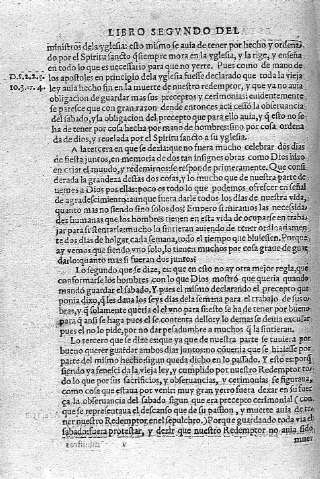 LIBRO SEGVNDO DEL
ministros dela yglesia: esto mismo se auia de tener por hecho y ordena
do por el Spiritu sancto q̃ siempre mora en la yglesia, y la rige, y enseña
en todo lo que es necessario para que no yerre. Pues como de mano de
los apostoles en principio dela yglesia fuesse declarado que toda la vieja
ley auia hecho fin en la muerte de nuestro redemptor, y que ya no auia
obligacion de guardar mas sus preceptos y cerimonias: euidentemente
se paresce que con gran razon desde entonces acà cesso la obseruancia
del sabado, y la obligacion del precepto que para ello auia, y q̃ esto no se
ha de tener por cosa hecha por mano de hombres: sino por cosa ordena
da de dios, y reuelada por el Spiritu sancto a su yglesia.
A la tercera en que se dezia que no fuera mucho celebrar dos dias
de fiesta juntos, en memoria de dos tan insignes obras como Dios hizo
en criar el mundo, y redemirnos: se responde primeramente. Que consi
derada la grandeza destas dos cosas, y lo mucho que de nuestra parte de
uemos a Dios por ellas: poco es todo lo que podemos ofrescer en señal
de agradescimiento: aunque fuera darle todos los dias de nuestra vida,
quanto mas no siendo sino solos dos. Empero si miramos las necesida
des humanas que los hombres tienen en esta vida de ocuparse en traba
jar para sustentarse: mucho lo sintieran auiendo de tener ordinariamen
te dos dias de holgar cada semana, todo el tiempo que biuiessen. Porque
ay vemos que siendo vno solo, lo tienen muchos por cosa graue de guar
dar: lo quanto mas si fueran dos juntos?
Lo segundo que se dize, es: que en esto no ay otra mejor regla, que
conformarse los hombres con lo que Dios mostrò que queria quando
mandò guardar el sabado. Y pues el mismo declarando el precepto que
ponia dixo, q̃ les daua los seys dias dela semana para el trabajo de sus o-
bras, y q̃ solamente queria el el vno para si: esto se ha de tener por bueno
para q̃ assi se haga pues el se contenta dello: y lo demas se deuia escusar
pues el no lo pide, por no dar pesadumbre a muchos q̃ la sintieran.
Lo tercero que se dize es: que ya que de nuestra parte se tuuiera por
bueno querer guardar ambos dias juntos: no conuenia que se hiziesse por
parte del mismo hecho: segun queda dicho en lo passado. Y esto es porq̃
siendo ya fenescida la vieja ley, y cumplido por nuestro Redemptor to-
do lo que por sus sacrificios, y obseruancias, y cerimonias se figuraua,
como cosa que estaua por venir: muy gran yerro fuera dexar en su fuer
ça la obseruancia del sabado segun que era precepto cerimonial (con
que se representaua el descanso que de su passion, y muerte auia de te
ner nuestro Redemptor en el sepulchro.) Porque guardando toda via el
sabado: fuera protestar, y dezir que nuestro Redemptor no auia sido
muer